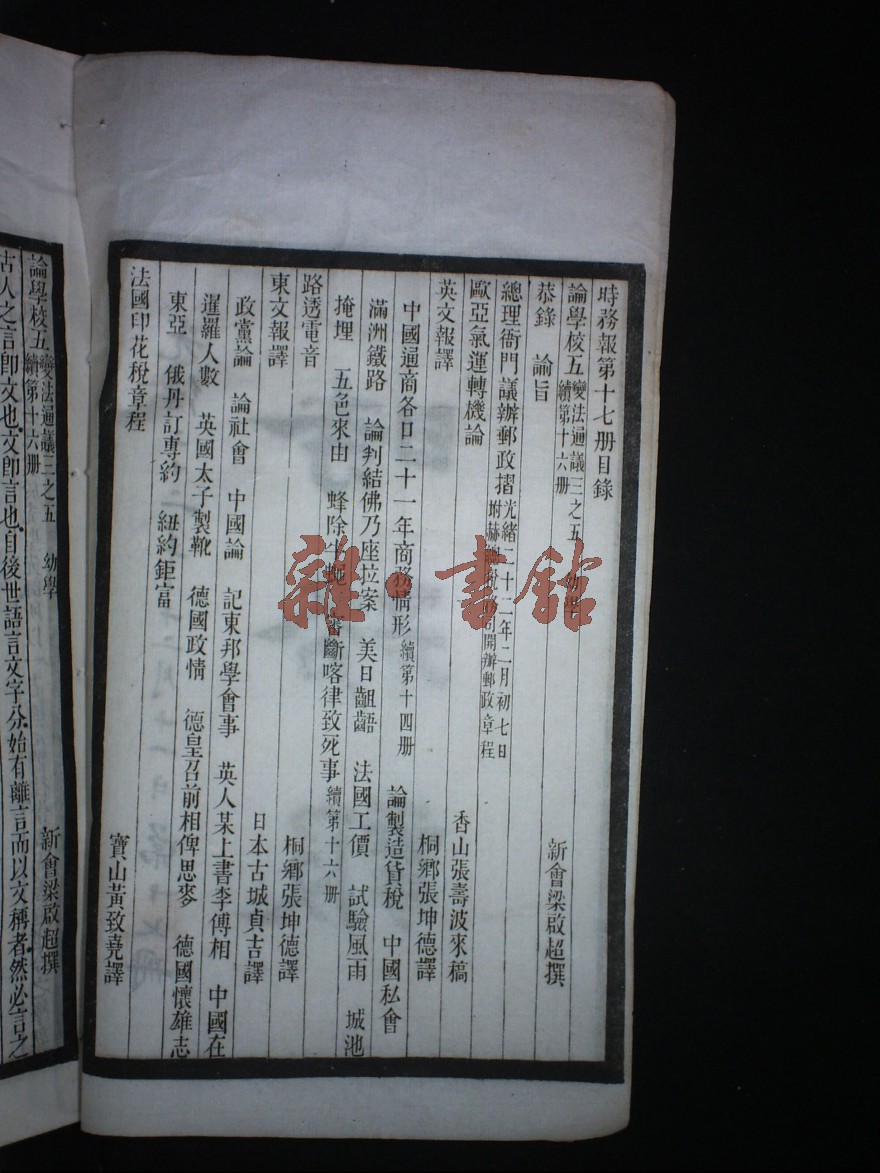 時務報第十七册目錄
論學校五 變法通議三之五 幼學 續第十六册 新會梁啟超撰
恭錄 諭旨
總理衙門議辦郵政摺 光緒二十二年二月初七日 附赫 開辦郵政章程
歐亞氣運轉機論 香山張壽波來稿
英文報譯 桐鄉張坤德譯
中國通商各口二十一年商務情形 續第十四册 論製造貨稅 中國私會
滿洲鐵路 論判結佛乃座拉案 美日齟齬 法國工價 試驗風雨 城池
掩埋 五色來由 蜂除牛蠅 審斷喀律致死事 續第十六册
路透電音 桐鄉張坤德譯
東文報譯 日本古城貞吉譯
政黨論 論社會 中國論 記東邦學會事 英人某上書李傅相 中國在
暹羅人數 英國太子製靴 德國政情 德皇召前相俾思麥 德國懷雄志
東亞 俄丹訂專約 紐約鉅富
法國印花稅章程 寶山黃致堯譯
論學校五 變法通議三之五 幼學 續第十六册 新會梁啟超撰
古人之言即文也文即言也自後世語言文字分始有離言而以文稱者然必言之
雜·書館